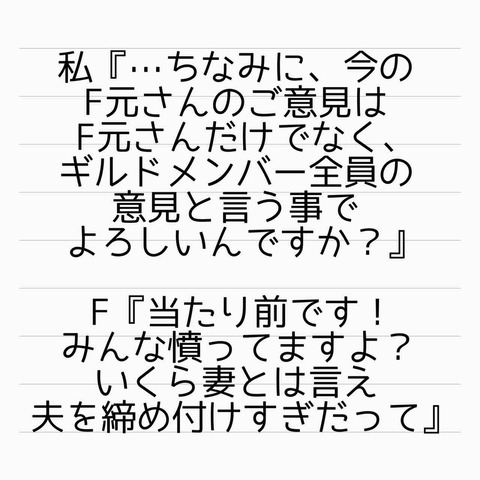 私『…ちなみに、今の
F元さんのご意見は
F元さんだけでなく、
ギルドメンバー全員の
意見と言う事で
よろしいんですか？』
F『当たり前です！
みんな憤ってますよ？
いくら妻とは言え
夫を締め付けすぎだって』